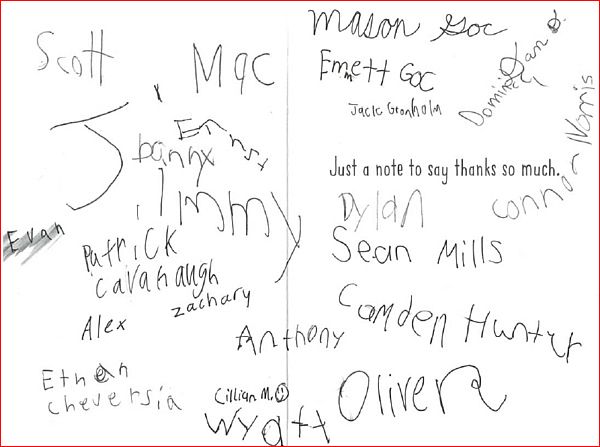 Scott
Mac
Ernst
Jimmy
Evan
Patrick
Cavanaugh
zachary
Alex
Anthony
Ethan
cheversia
Cillian M.
Wyatt
Mason Goc
Emmett Goc
Jack Gronholm
Dominic
Connor Norris
Just a note to say thanks so much.
Dylan
Sean Mills
Camden Hunter
Oliver